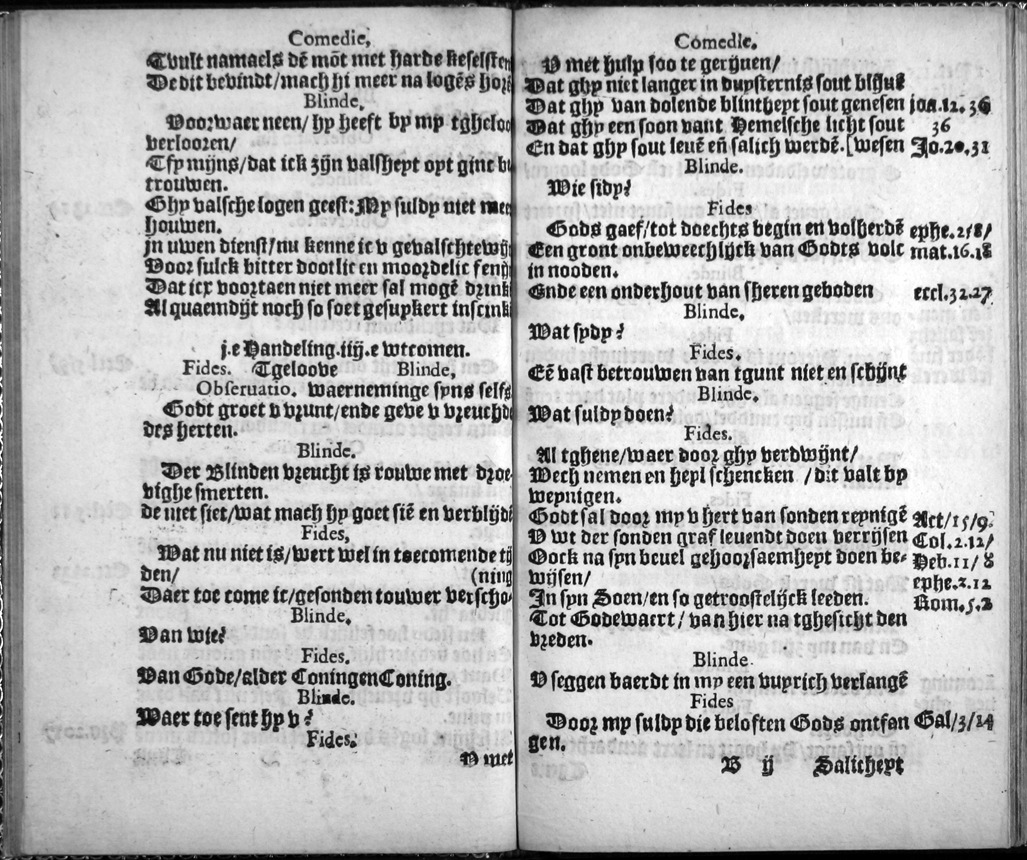 Comedie,
Tvult namaels dē mōt met harde keselsten
De dit bevindt/mach hi meer na logēs
Blinde,
Voorwaer neen/ hp heeft bp mp tgheloo
verlooren/
Tsp mijns/dat ick zijn valshept opt gine
trouwen.
Ghp valsche logen geest: Mp suldp niet meer
houwen.
jn uwen dienst/nu kenne ic v gevalschte
Voor sulck bitter dootlic en moordelic fenijn
Dat icx voortaen niet meer sal mogē drink
Al quaemdijt noch so soet gesupkert inscink
j.e Handeling.iij.e wtcomen.
Fides. Tgeloove Blinde,
Obseruatio. waerneminge spns selfs
Godt groet v vrunt/ende geve v vreuchd
des herten.
Blinde.
Der Blinden vreucht is rouwe met droe-
vighe smerten.
de niet siet/wat mach hp goet siē en verblijdē
Fides,
Wat nu niet is/wert wel in toecomende tij
den/ (ning
Daer toe come ic/gesonden touwer verscho-
Blinde,
Van wie?
Fides.
Van Gode/alder Coningen Coning.
Blinde.
Waer toe sent hp v?
Fides.
V met
Comedie.
V met hulp soo te gerijuen/
Dat ghp niet langer in dupsternis sout blijus
Dat ghp van dolende blinthept sout genesen joa.12.36
Dat ghp een soon vant Hemelsche licht sout 36
En dat ghp sout leuē eñ salich werdē.[wesen Jo.20.31
Blinde.
Wie sidp?
Fides
Gods gaef/tot doechts begin en volherdē ephe.2/8/
Een gront onbeweechlijck van Godts volc mat.16.18
in nooden.
Ende een onderhout van sheren geboden eccl.32.27
Blinde,
Wat spdp?
Fides.
Eē vast betrouwen van tgunt niet en schijnt
Blinde.
Wat suldp doen?
Fides.
Al tghene/waer door ghp verdwijnt/
Wech nemen en hepl schencken /dit valt bp
wepnigen.
Godt sal door mp v hert van sonden repnigē Act/15/9.
V wt der sonden graf leuendt doen verrijsen Col.2.12/
Oock na spn beuel gehoorsaemhept doen be- Heb.11/8
wijsen/ ephe.2.12
In spn Soen/en so getroostelijck leeden. Rom.5.2
Tot Godewaert/van hier na tghesicht den
vreden.
Blinde
V seggen baerdt in mp een vuprich verlangē
Fides
Door mp suldp die beloften Gods ontfan Gal/3/14
gen.
B ij Salichept